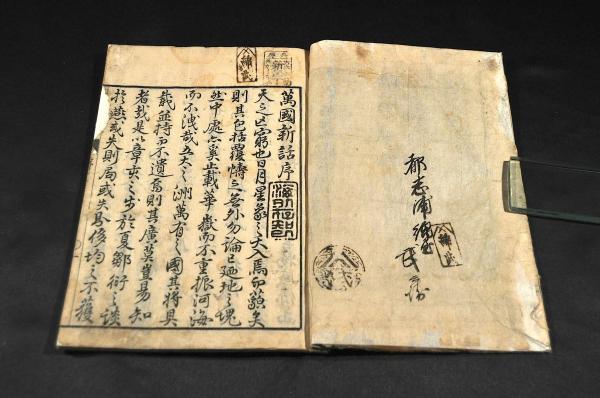 都志浦
萬國新話序
天之亡窮也日月星象之大入焉而藐矣
則其包括覆幬之容外勿論已廼地之塊
然中處亦奚止載華嶽而不重振河海
而不洩哉五大之洲萬有之國其將具
載並持而不遺焉則其廣莫豈易知
者哉是以章亥之步於夏鄒衍之談
於燕或失則局或失則侈均之不獲